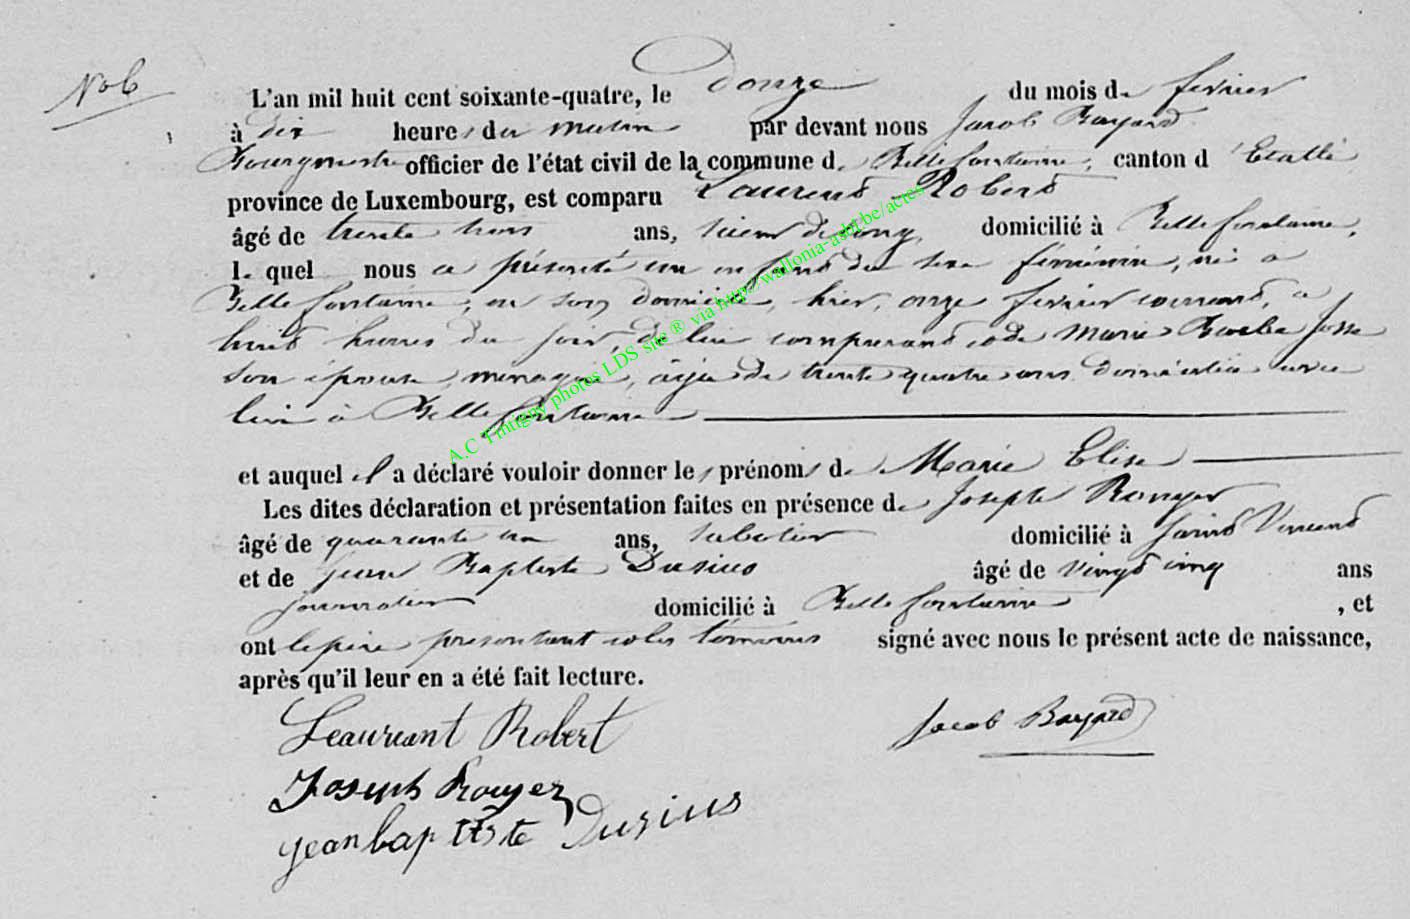 No 6
L'an mil huit cent soixante-quatre, le douze du mois de fevrier
à dix heures du matin par devant nous Jacob Bayard
Bourgmestre officier de l'état civil de la commune de Bellefontaine, canton d'Etalle
province de Luxembourg, est comparu Laurent Robert
âgé de trente trois ans, scieur de long, domicilié à Bellefontaine,
lequel nous a présenté un enfant du sexe féminin, né à
Bellefontaine, en son domicile, hier, onze fevrier courant, à
huit heures du soir, de lui comparant et de Marie Barbe Josse
son épouse, menagère, âgée de trente quatre ans domiciliée avec
lui à Bellefontaine
et auquel il a déclaré vouloir donner les prénoms de Marie Elise
Les dites déclaration et présentation faites en présence de Joseph Rouyer
âgé de quarante un ans, sabotier domicilié à Saint Vincent
et de Jean Baptiste Dusius âgé de vingt cinq ans
journalier domicilié à Bellefontaine, et
ont le père présentant et les témoins signé avec nous le présent acte de naissance,
après qu'il leur en a été fait lecture.
Leaureant Robert Jacob Bayard
Joseph Rouyer
jean baptiste Dusius
A.C Tintigny photos LDS site ® via http://wallonia-asbl.be/actes